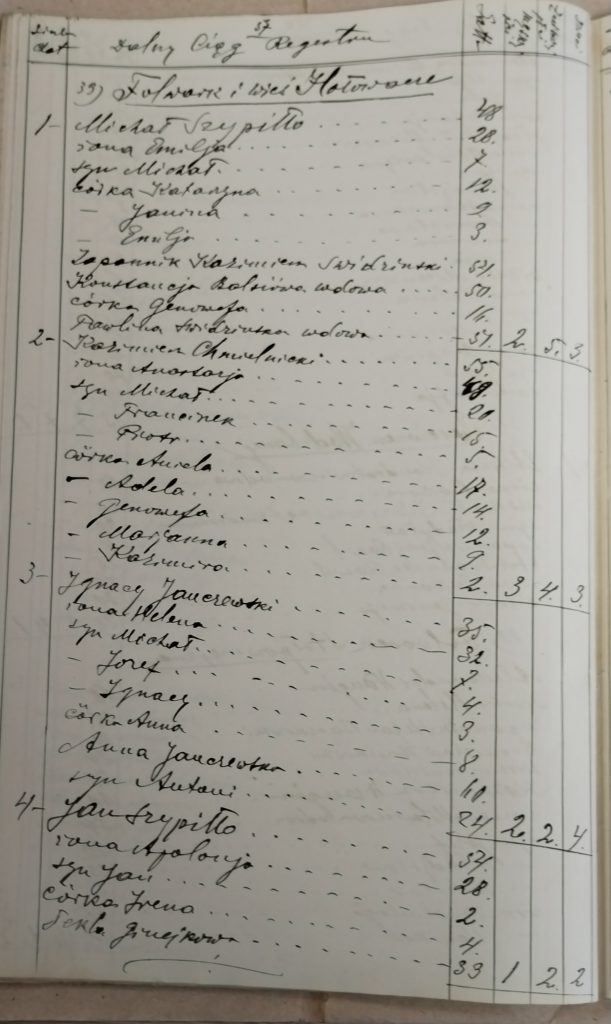 37
Dalszy Ciąg Regestru
39) Folwark i wieś Hołowacze
1 - Michał Szypiłło 48
żona Emilja 28.
syn Michał 7
córka Katarzyna 12.
— Janina 9
— Emilja 3.
Kazimierz Swidziński 51.
Konstancja wdowa 50.
córka Genowefa 16.
Paulina Swidzińska wdowa 51. 2. 5. 3.
2 - Kazimierz Chmielnicki 55.
żona Anastazja 48.
syn Michał 20.
— Franciszek 15.
— Piotr 5.
córka Aniela 17.
— Adela 14.
— Genowefa 12.
— Marjanna 9.
— Kazimira 2. 3 4. 3.
3 - Ignacy Janczewski 35.
żona Helena 32.
syn Michał 7.
— Jozef 4.
— Ignacy 3.
córka Anna 8.
Anna Janczewska 60.
syn Antoni 24. 2. 2. 4.
4 - Jan Szypiłło 34.
żona Apolonja 28.
syn Jan 2.
córka Irena 4.
Tekla 39 1 2. 2